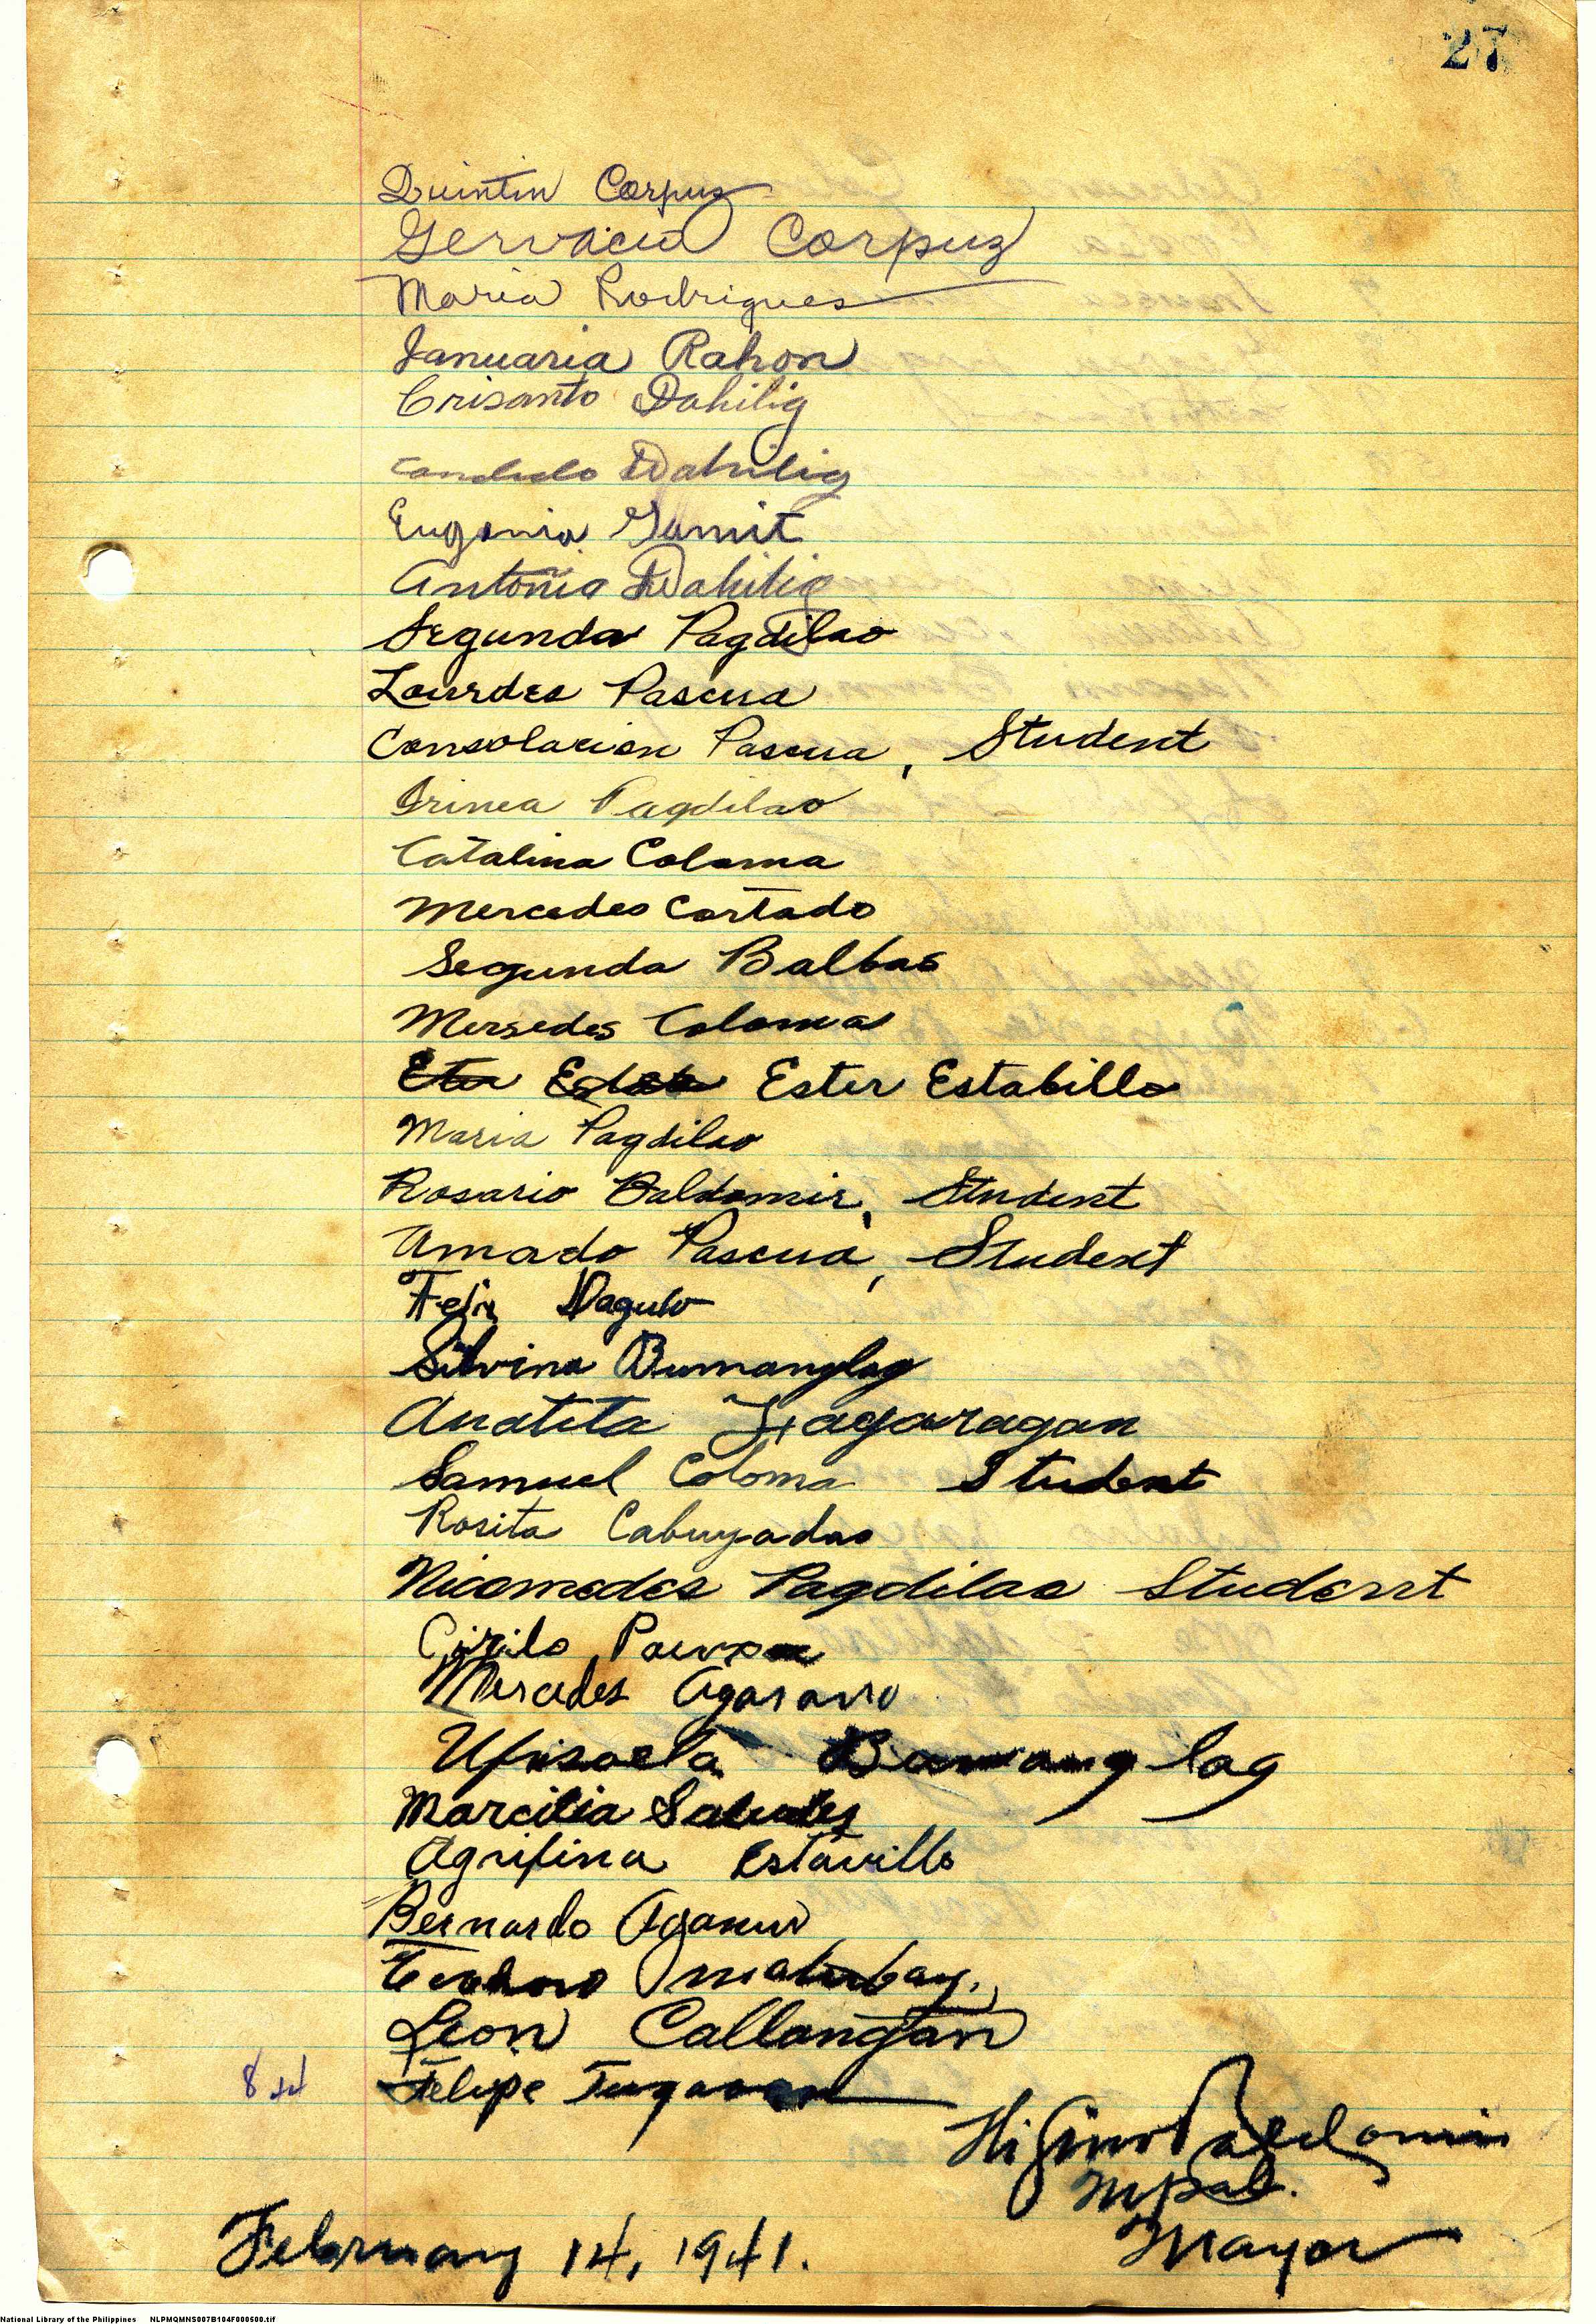 27
Quintin Corpuz
Gervacio Corpuz
Maria Rodrigues
Januaria Rahon
Crisanto Dahilig
Candido Dahilig
Eugenia Gamit
Antonia Dahilig
Segunda Pagdilao
Lourdes Pascua
Consolacion Pascua, Student
Irinea Pagdilao
Catalina Coloma
Mercedes Cortado
Segunda Balbas
Mersedes Coloma
Ester Estabillo
Maria Pagdilao
Rosario Baldomir, Student
Amado Pascua, Student
Felix Dagulo
Silvina Bumanglag
Anatita Lagaragan
Samuel Coloma Student
Rosita Cabuyadao
Nicomedes Pagdilao Student
Cirilo
Mercedes
Bumanglag
Marcilia
Agrifina Estavillo
Bernardo
Leon Callangan
Felipe
Higino Baldomir
Mpal.
Mayor
February 14, 1941.
National Library of the Philippines NLPMQMNS007B104F000500.tif